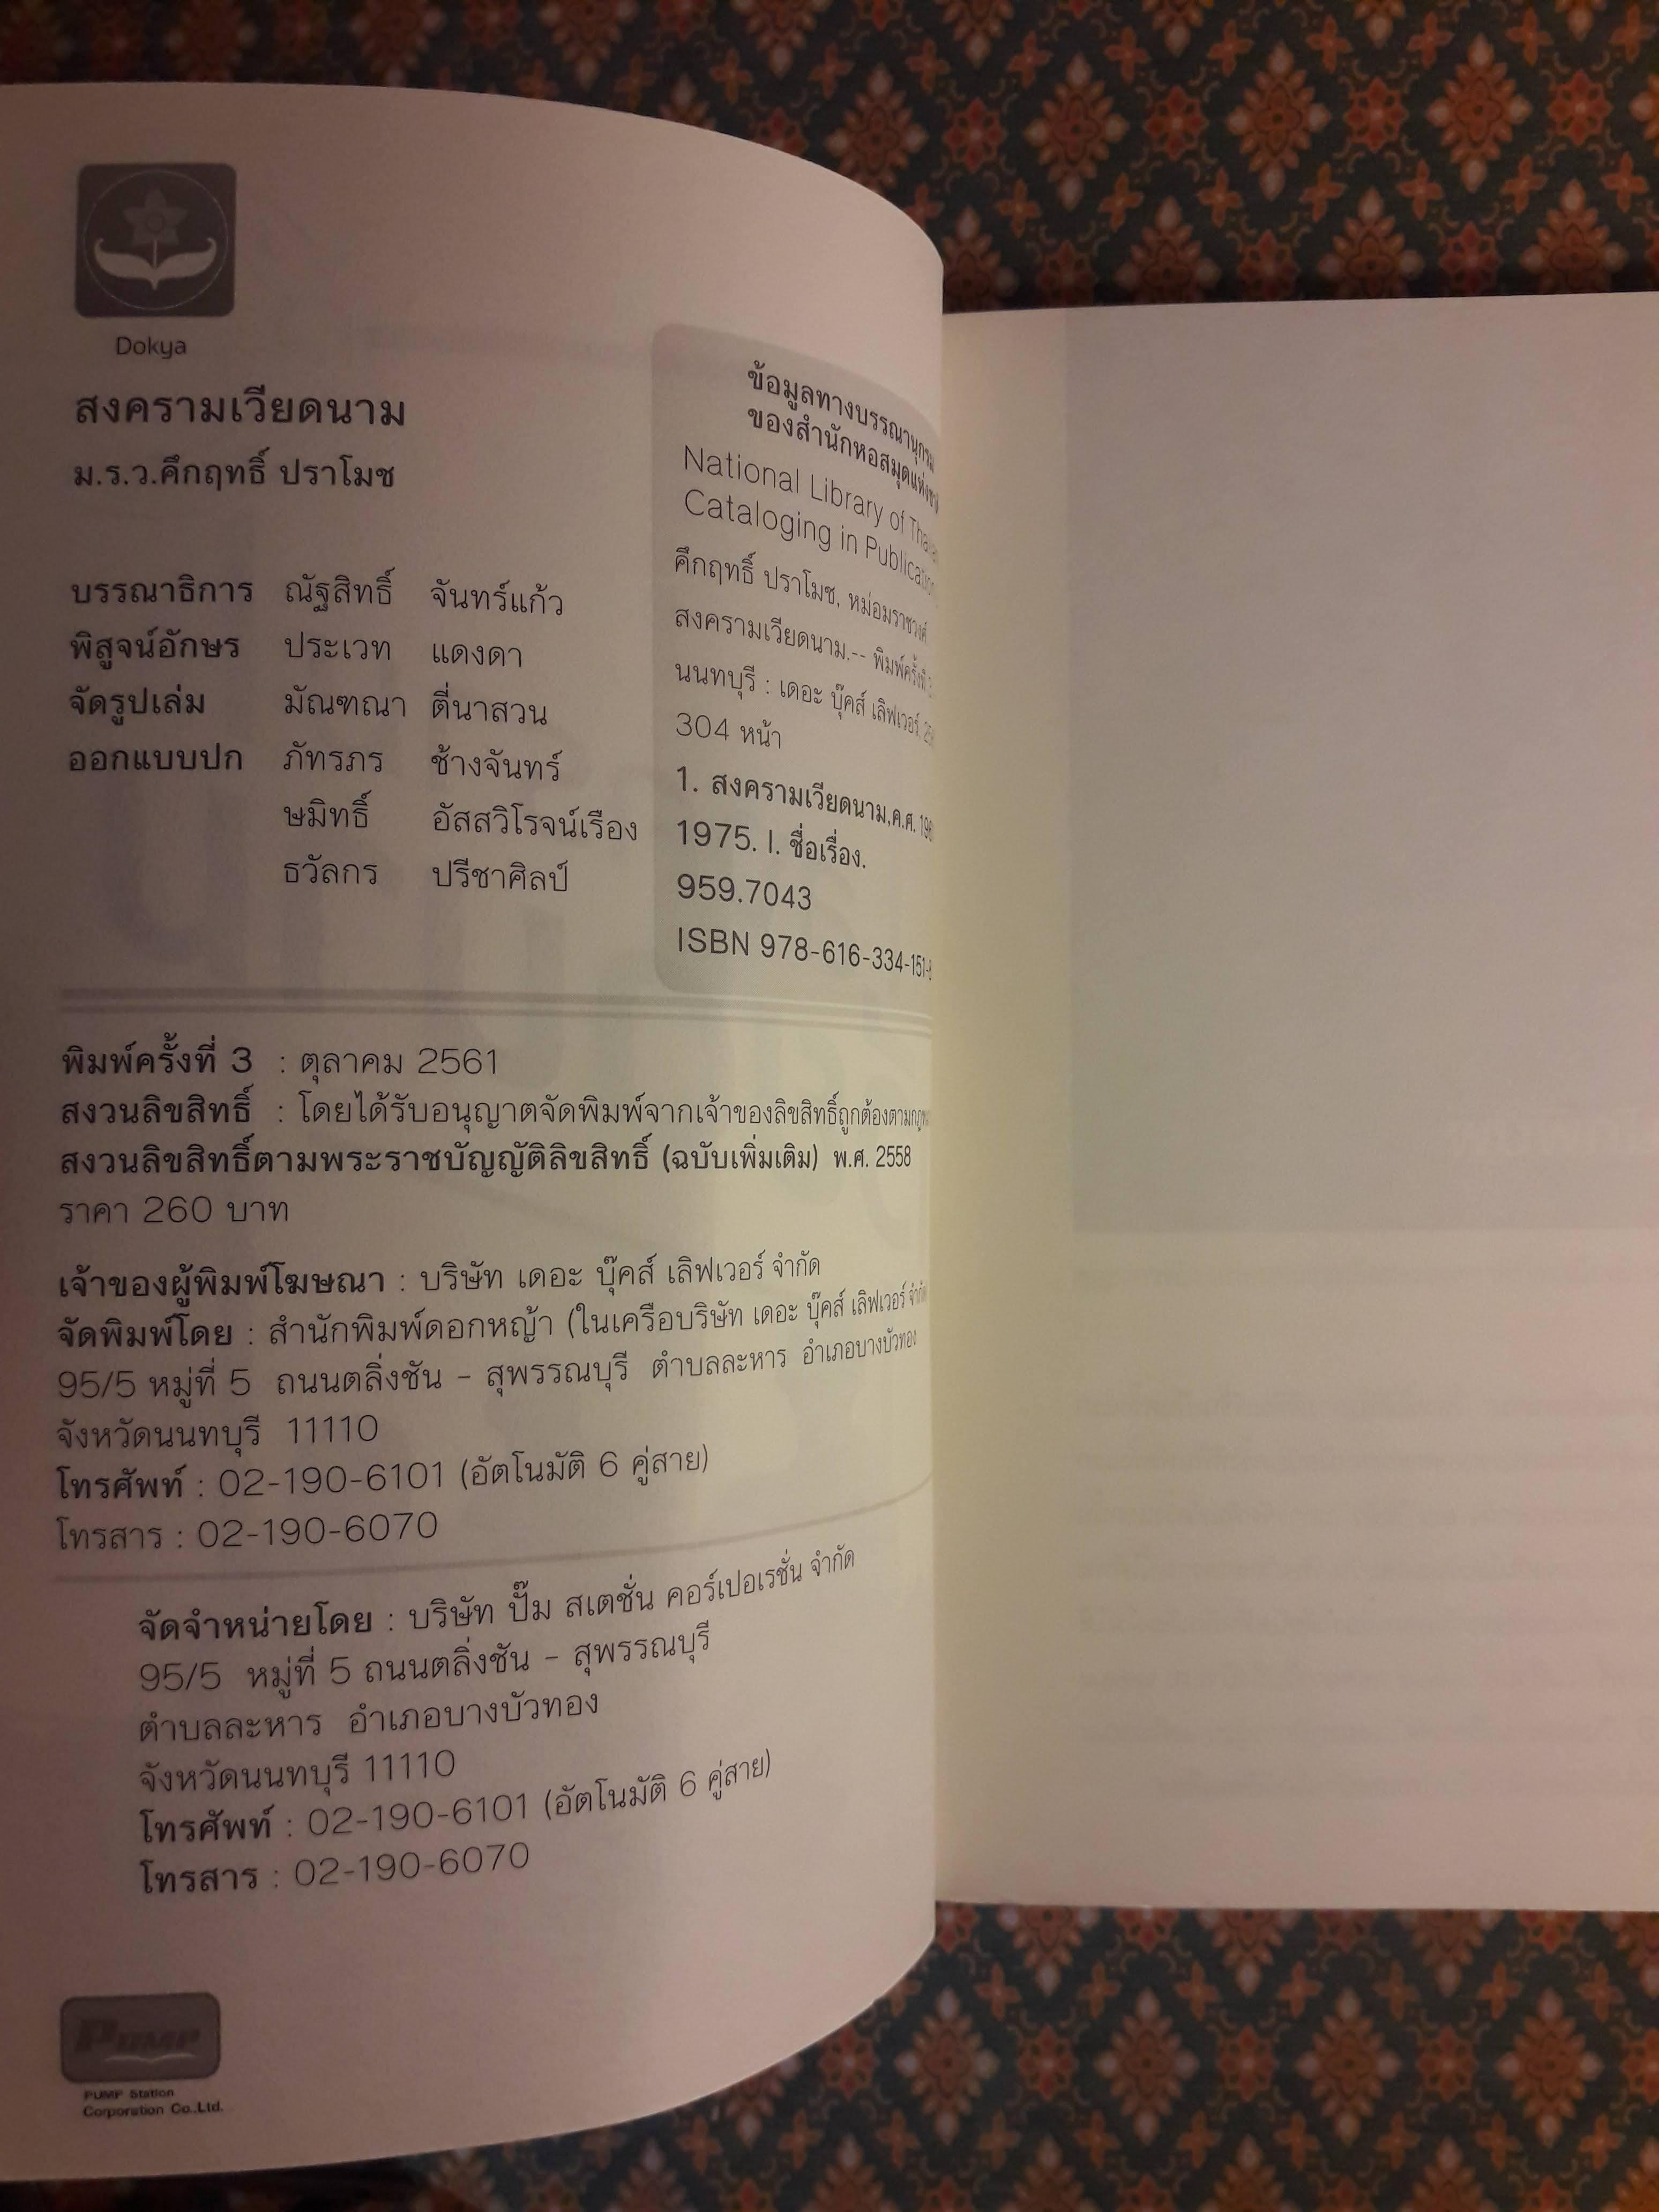 Dokya
สงครามเวียดนาม
ม.ร.ว.คึกฤทธิ์ ปราโมช
บรรณาธิการ ณัฐสิทธิ์ จันทร์แก้ว
พิสูจน์อักษร ประเวท แดงดา
จัดรูปเล่ม มัณฑณา ตี่นาสวน
ออกแบบปก ภัทรภร ช้างจันทร์
ษมิทธิ์ อัสสวิโรจน์เรือง
ธวัลกร ปรีชาศิลป์
ข้อมูลทางบรรณานุกรม
ของสำนักหอสมุดแห่งชาติ
National Library of
Cataloging in
คึกฤทธิ์ ปราโมช, หม่อมราชวงศ์
สงครามเวียดนาม.-- พิมพ์ครั้งที่
นนทบุรี : เดอะ บุ๊คส์ เลิฟเวอร์,
304 หน้า
1. สงครามเวียดนาม,ค.ศ.
1975. I. ชื่อเรื่อง.
959.7043
ISBN 978-616-334-151-
พิมพ์ครั้งที่ 3 : ตุลาคม 2561
สงวนลิขสิทธิ์ : โดยได้รับอนุญาตจัดพิมพ์จากเจ้าของลิขสิทธิ์ถูกต้อง
สงวนลิขสิทธิ์ตามพระราชบัญญัติลิขสิทธิ์ (ฉบับเพิ่มเติม) พ.ศ. 2558
ราคา 260 บาท
เจ้าของผู้พิมพ์โฆษณา : บริษัท เดอะ บุ๊คส์ เลิฟเวอร์ จำกัด
จัดพิมพ์โดย : สำนักพิมพ์ดอกหญ้า (ในเครือบริษัท เดอะ บุ๊คส์ เลิฟเวอร์ จำกัด
95/5 หมู่ที่ 5 ถนนตลิ่งชัน - สุพรรณบุรี ตำบลละหาร อำเภอบางบัวทอง
จังหวัดนนทบุรี 11110
โทรศัพท์ : 02-190-6101 (อัตโนมัติ 6 คู่สาย)
โทรสาร : 02-190-6070
จัดจำหน่ายโดย : บริษัท ปั๊ม สเตชั่น คอร์เปอเรชั่น จำกัด
95/5 หมู่ที่ 5 ถนนตลิ่งชัน - สุพรรณบุรี
ตำบลละหาร อำเภอบางบัวทอง
จังหวัดนนทบุรี 11110
โทรศัพท์ : 02-190-6101 (อัตโนมัติ 6 คู่สาย)
โทรสาร : 02-190-6070
PUMP
PUMP Station
Corporation Co.,Ltd.